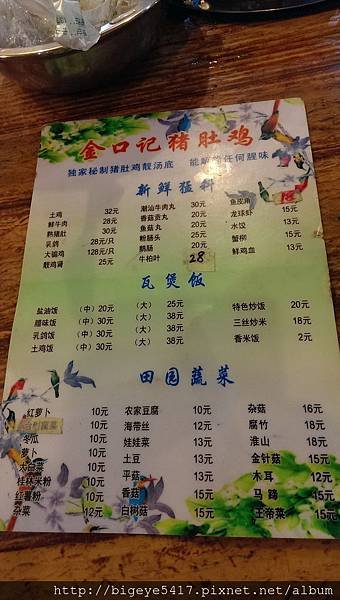 金口记猪肚鸡
独家秘制猪肚鸡靓汤底 能解除任何腥味
新鲜猛料
土鸡 32元 潮汕牛肉丸 30元 鱼皮角 18
鲜牛肉 28元 香菇贡丸 20元 龙球虾 15元
熟猪肚 30元 鱼菇丸 20元 水饺 13元
乳鸽 28元/只 粉肠头 20元 蟹柳 15元
大骟鸡 128元/只 鹅肠 20元 鲜鸡血 13元
靓鸡肾 25元 牛柏叶 28
瓦煲饭
盐油饭 (中)20元 (大) 25元 特色炒饭 20元
腊味饭 (中)30元 (大) 38元 三丝炒米 18元
乳鸽饭 (中)30元 (大) 38元 香米饭 2元
土鸡饭 (中)30元 (大) 38元
田园蔬菜
红萝卜 10元 农家豆腐 10元 杂菇 16元
10元 海带丝 12元 腐竹 18元
冬瓜 10元 娃娃菜 13元 淮山 18元
萝卜 10元 土豆 13元 金针菇 15元
大白菜 10元 平菇 13元 木耳 12元
桂林米粉 10元 香菇 15元 马蹄 15元
红薯粉 10元 白树菇 15元 王帝菜 15元
杂菜 12元
http://bigeye5417.pixnet.net/album